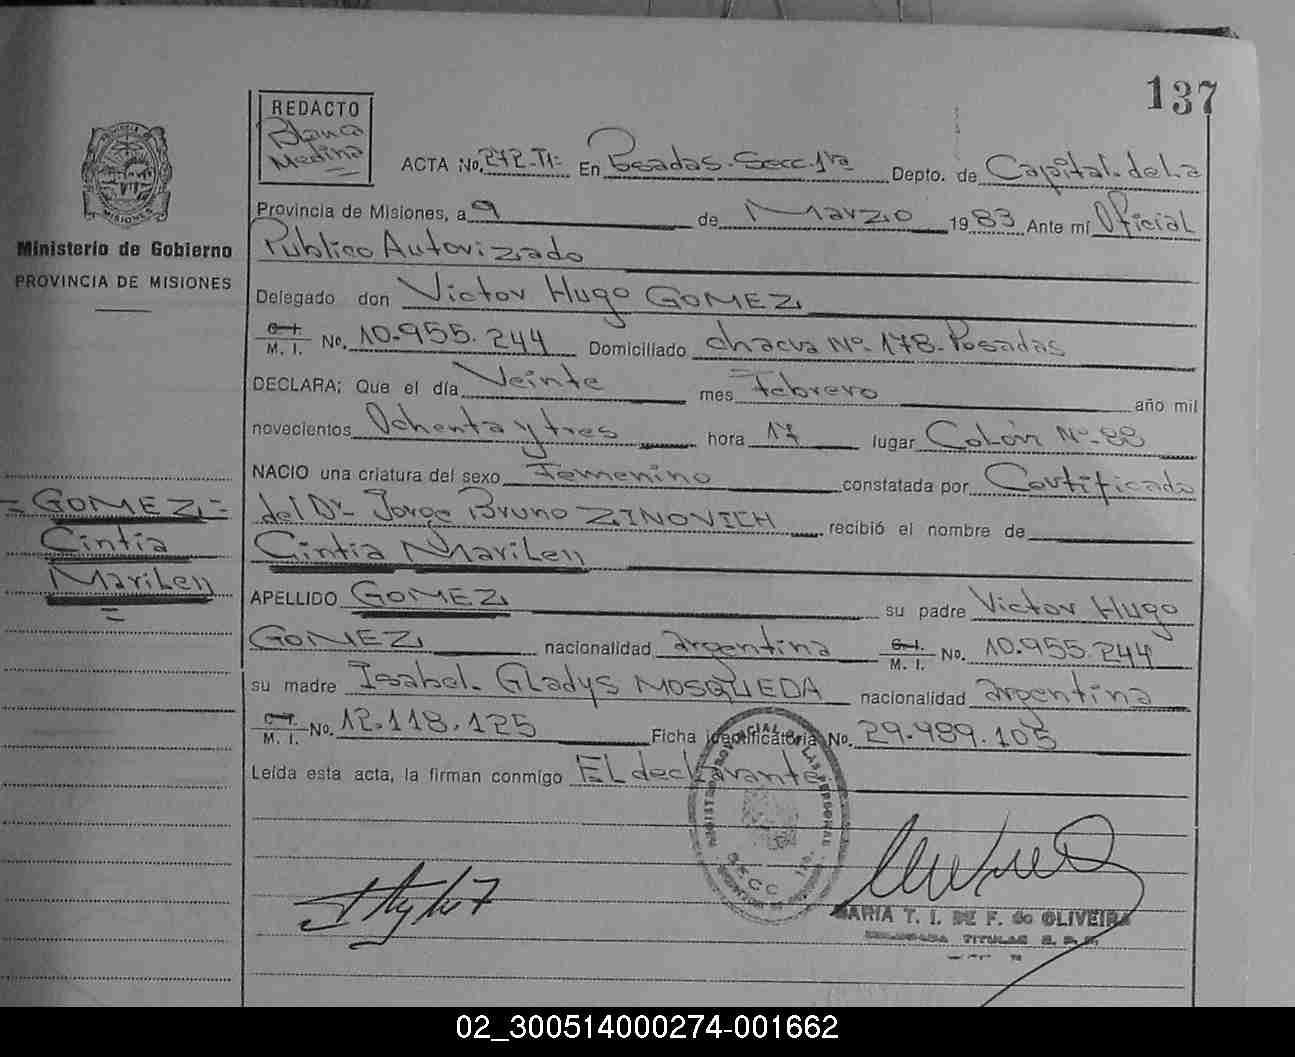 137
REDACTO
Blanca
Medina
ACTA No. 272-T1= En Posadas-Secc.1ra Depto. de Capital-de La
Provincia de Misiones, a 9 de Marzo 1983 Ante mí Oficial
Público Autorizado
Ministerio de Gobierno
PROVINCIA DE MISIONES
Delegado don Victor Hugo GOMEZ
C. I.
M. I. No. 10.955.244 Domiciliado chacra Nº-178-Posadas
DECLARA; Que el día Veinte mes Febrero año mil
novecientos Ochenta y tres hora 17 lugar Colón Nº-88
NACIO una criatura del sexo Femenino constatada por Certificado
del Dr. Jorge Bruno ZINOVICH recibió el nombre de
Cintia Marilen
=GOMEZ=
Cintia
Marilen
APELLIDO GOMEZ su padre Victor Hugo
GOMEZ nacionalidad argentina C. I. M. I. No. 10.955.244
su madre Isabel-Gladys MOSQUEDA nacionalidad argentina
C. I.
M. I. No. 12.118.125 Ficha identificatoria No. 29.989.105
Leída esta acta, la firman conmigo El declarante
MARIA T. I. DE F. de OLIVEIRA
DELEGADA TITULAR
02_300514000274-001662